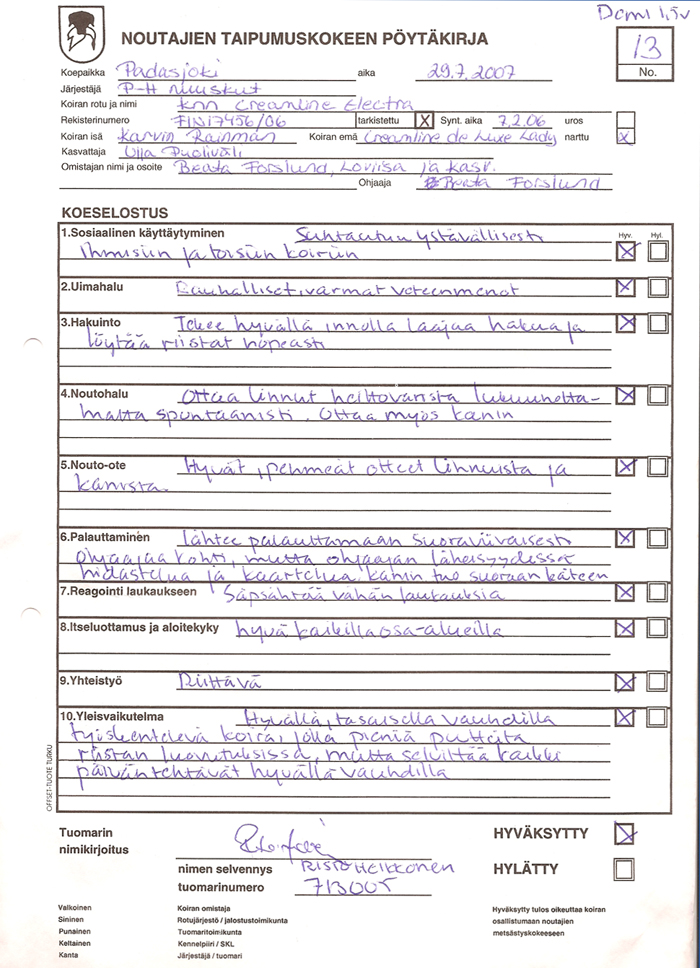 Dami 1,5v
NOUTAJIEN TAIPUMUSKOKEEN PÖYTÄKIRJA
13
No.
Koepaikka Padasjoki aika 29.7.2007
Järjestäjä P-H nuuskut
Koiran rotu ja nimi knn Creamline Electra
Rekisterinumero FIN17456/06 tarkistettu X Synt. aika 7.2.06 uros
Koiran isä Karvin Rainman Koiran emä Creamline de Luxe Lady narttu X
Kasvattaja Ulla Puoliväli
Omistajan nimi ja osoite Beata Forslund, Loviisa ja kasv.
Ohjaaja Beata Forslund
KOESELOSTUS
Hyv. Hyl.
1.Sosiaalinen käyttäytyminen Suhtautuu ystävällisesti X
ihmisiin ja toisiin koiriin
2.Uimahalu Rauhalliset, varmat veteenmenot X
3.Hakuinto Tekee hyvällä innolla laajaa hakua ja X
löytää riistat nopeasti
4.Noutohalu Ottaa linnut heittovarista lukuunotta- X
matta spontaanisti. Ottaa myös kanin
5.Nouto-ote Hyvät, pehmeät otteet linnuista ja X
kanista.
6.Palauttaminen lähtee palauttamaan suoraviivaisesti X
ohjaajaa kohti, mutta ohjaajan läheisyydessä
hidastelua ja kaartelua. kanin tuo suoraan käteen
7.Reagointi laukaukseen Säpsähtää vähän laukauksia X
8.Itseluottamus ja aloitekyky hyvä kaikilla osa-alueilla X
9.Yhteistyö Riittävä X
10.Yleisvaikutelma Hyvällä, tasaisella vauhdilla X
työskentelevä koira, jolla pieniä puutteita
riistan luovutuksissa, mutta selvittää kaikki
päivän tehtävät hyvällä vauhdilla
OFFSET-TUOTE TURKU
Tuomarin
nimikirjoitus
HYVÄKSYTTY X
nimen selvennys RISTO HEIKKONEN HYLÄTTY
tuomarinumero 713005
Valkoinen Koiran omistaja
Sininen Rotujärjestö / jalostustoimikunta
Punainen Tuomaritoimikunta
Keltainen Kennelpiiri / SKL
Kanta Järjestäjä / tuomari
Hyväksytty tulos oikeuttaa koiran
osallistumaan noutajien
metsästyskokeeseen